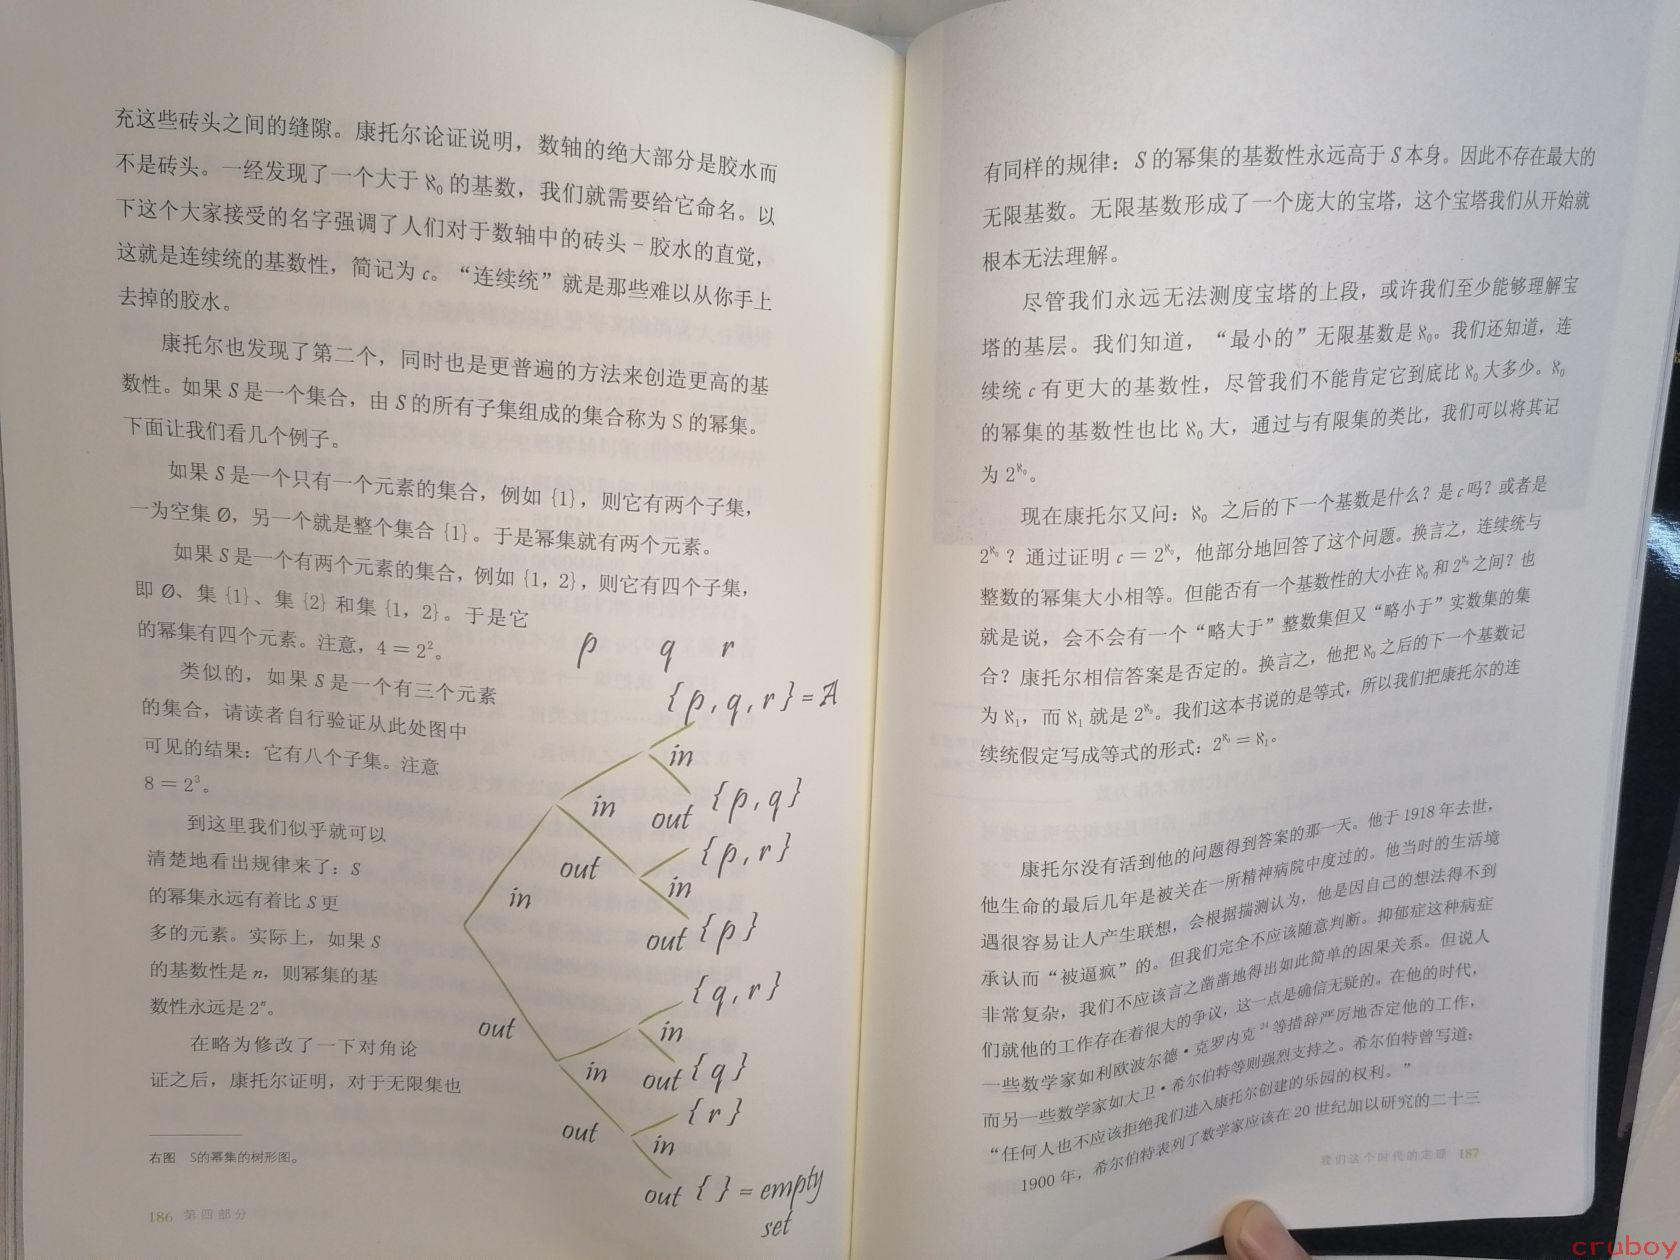 充这些砖头之间的缝隙。康托尔论证说明，数轴的绝大部分是胶水而
不是砖头。一经发现了一个大于 ℵ₀ 的基数，我们就需要给它命名。以
下这个大家接受的名字强调了人们对于数轴中的砖头－胶水的直觉，
这就是连续统的基数性，简记为 c。“连续统”就是那些难以从你手上
去掉的胶水。
康托尔也发现了第二个，同时也是更普遍的方法来创造更高的基
数性。如果 S 是一个集合，由 S 的所有子集组成的集合称为 S 的幂集。
下面让我们看几个例子。
如果 S 是一个只有一个元素的集合，例如 {1}，则它有两个子集，
一为空集 Ø，另一个就是整个集合 {1}。于是幂集就有两个元素。
如果 S 是一个有两个元素的集合，例如 {1，2}，则它有四个子集，
即 Ø、集 {1}、集 {2} 和集 {1，2}。于是它
的幂集有四个元素。注意，4 = 2²。
类似的，如果 S 是一个有三个元素
的集合，请读者自行验证从此处图中
可见的结果：它有八个子集。注意
8 = 2³。
到这里我们似乎就可以
清楚地看出规律来了：S
的幂集永远有着比 S 更
多的元素。实际上，如果 S
的基数性是 n，则幂集的基
数性永远是 2ⁿ。
在略为修改了一下对角论
证之后，康托尔证明，对于无限集也
p q r
{p,q,r}=A
in
in
out {p,q}
{p,r}
out
in
in
out {p}
{q,r}
out
in
in
out {q}
{r}
out
in
out { } = empty
set
右图 S的幂集的树形图。
186 第四部分
有同样的规律：S 的幂集的基数性永远高于 S 本身。因此不存在最大的
无限基数。无限基数形成了一个庞大的宝塔，这个宝塔我们从开始就
根本无法理解。
尽管我们永远无法测度宝塔的上段，或许我们至少能够理解宝
塔的基层。我们知道，“最小的”无限基数是 ℵ₀。我们还知道，连
续统 c 有更大的基数性，尽管我们不能肯定它到底比 ℵ₀ 大多少。ℵ₀
的幂集的基数性也比 ℵ₀ 大，通过与有限集的类比，我们可以将其记
为 2^ℵ₀。
现在康托尔又问：ℵ₀ 之后的下一个基数是什么？是 c 吗？或者是
2^ℵ₀？通过证明 c = 2^ℵ₀，他部分地回答了这个问题。换言之，连续统与
整数的幂集大小相等。但能否有一个基数性的大小在 ℵ₀ 和 2^ℵ₀ 之间？也
就是说，会不会有一个“略大于”整数集但又“略小于”实数集的集
合？康托尔相信答案是否定的。换言之，他把 ℵ₀ 之后的下一个基数记
为 ℵ₁，而 ℵ₁ 就是 2^ℵ₀。我们这本书说的是等式，所以我们把康托尔的连
续统假定写成等式的形式：2^ℵ₀ = ℵ₁。
康托尔没有活到他的问题得到答案的那一天。他于 1918 年去世，
他生命的最后几年是被关在一所精神病院中度过的。他当时的生活境
遇很容易让人产生联想，会根据揣测认为，他是因自己的想法得不到
承认而“被逼疯”的。但我们完全不应该随意判断。抑郁症这种病症
非常复杂，我们不应该言之凿凿地得出如此简单的因果关系。但说人
们就他的工作存在着很大的争议，这一点是确信无疑的。在他的时代，
一些数学家如利欧波尔德·克罗内克²⁴等措辞严厉地否定他的工作，
而另一些数学家如大卫·希尔伯特等则强烈支持之。希尔伯特曾写道：
“任何人也不应该拒绝我们进入康托尔创建的乐园的权利。”
1900 年，希尔伯特表列了数学家应该在 20 世纪加以研究的二十三
我们这个时代的定理 187
cruboy